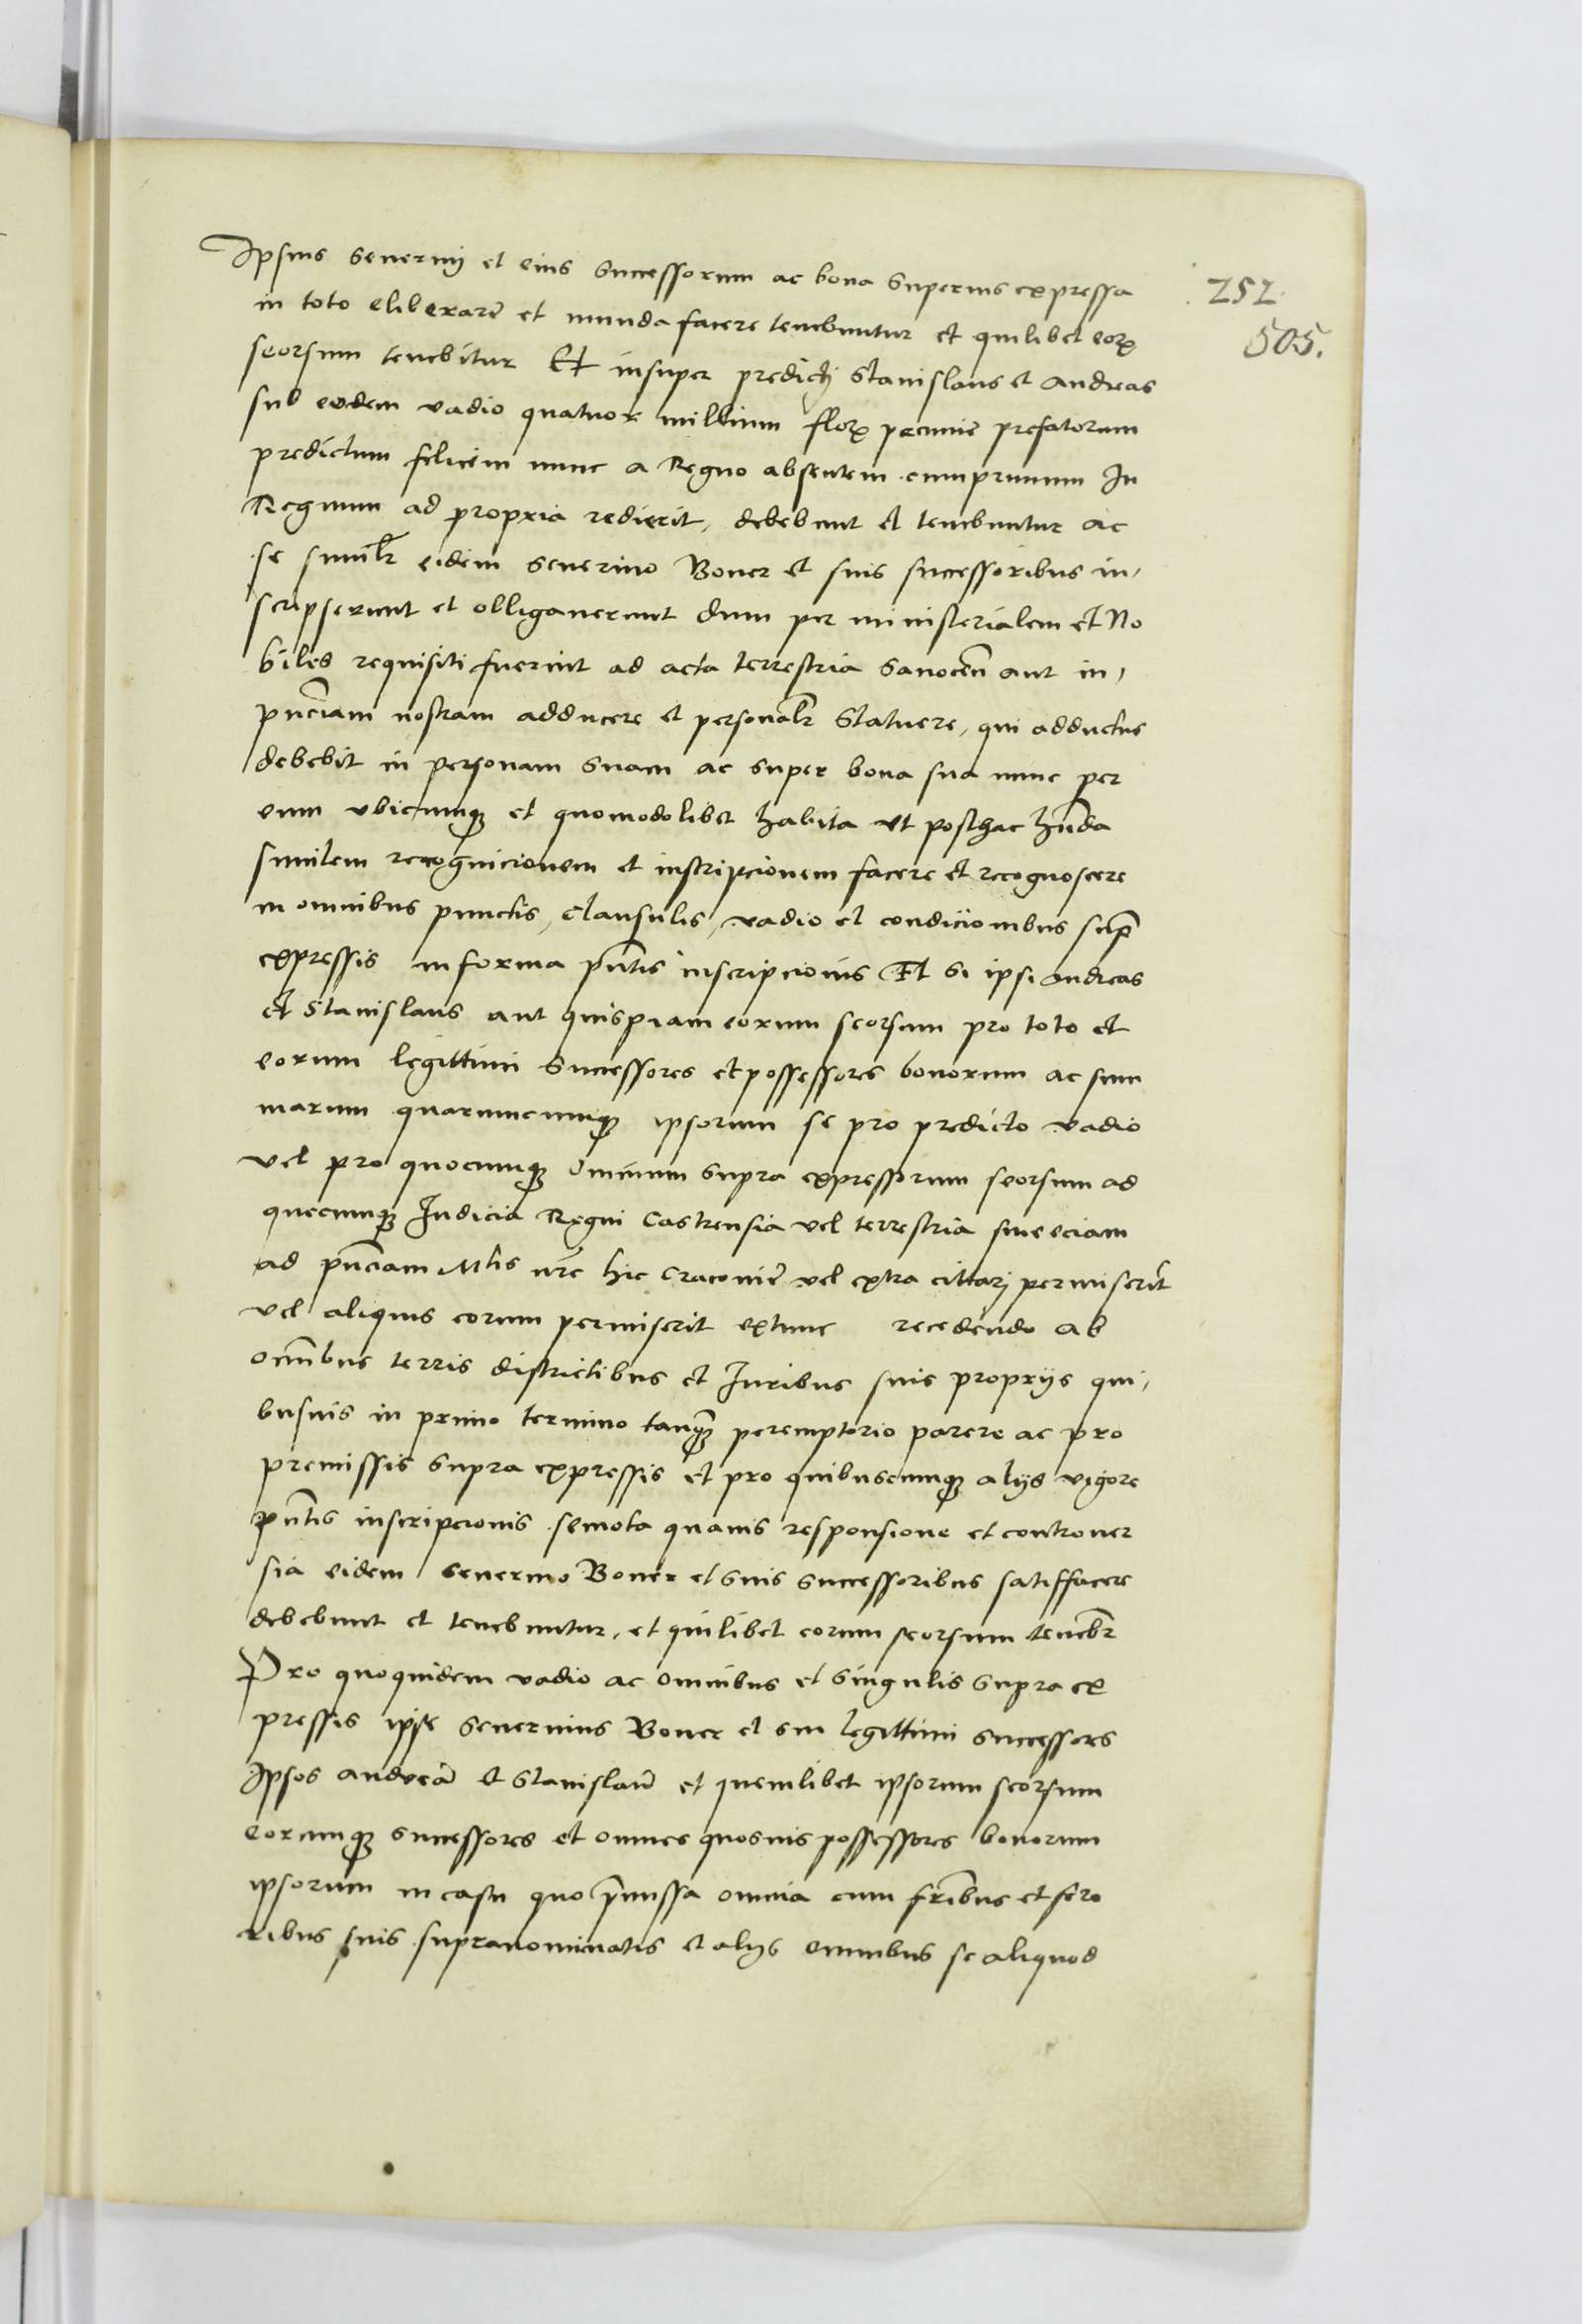 252
505.
Ipsius Severinj et eius Successorum ac bona Superius expressa
in toto eliberare et munda facere tenebuntur et quilibet eorꝝ
seorsum tenebitur Et insuper predictj Stanislaus et Andreas
sub eodem vadio quatuor millium florꝝ pecunie prefatorum
predictum felicem nunc a Regno absentem cumprimum In
Regnum ad propria redierit, debebunt et tenebuntur ac
se simil̃r eidem Severino Boner et suis successoribus in,
scripserunt et obligaverunt dum per ministerialem et No
biles requisiti fuerint ad acta terrestria Sanocen̄ aut in,
pn̄ciam nostram adducere et personal̃r Statuere, qui adductus
debebit in personam suam ac super bona sua nunc per
eum ubicumqꝫ et quomodolibet habita et posthac hn̄da
similem recognicionem et inscripcionem facere et recognoscere
in omnibus punctis, clausulis, vadio et condicionibus sup̃
expressis in forma pn̄tis inscripcionis Et si ipsi Andreas
et Stanislaus aut quispiam eorum seorsum pro toto et
eorum legittimi Successores et possessores bonorum ac sum
marum quarumcumqꝫ ipsorum se pro predicto vadio
vel pro quocumqꝫ Omnium supra expressorum seorsum ad
quecumqꝫ Judicia Regni Castrensia vel terrestria sive eciam
ad pn̄ciam Mtis nr̃e hic Cracovie vel extra cittarj permiserit
vel aliquis eorum permiserit extunc recedendo ab
omn̄ibus terris districtibus et Juribus suis proprijs qui,
busvis in primo termino tanqꝫ peremptorio parere ac pro
premissis supra expressis et pro quibuscumqꝫ alijs vigore
pn̄tis inscripcionis semota quavis responsione et controver
sia eidem Severino Boner et suis successoribus satisfacere
debebunt et tenebuntur, et quilibet eorum seorsum tenebr̃
Pro quoquidem vadio ac omnibus et singulis supra ex
pressis ipse Severinus Boner et sui legittimi successores
Ipsos andreā et Stanislaū et quemlibet ipsorum seorsum
eorumqꝫ successores et omnes quosvis possessores bonorum
ipsorum in casu quo p̄missa omnia cum fr̃ibus et soro
ribus suis supranominatis et alijs omnibus se aliquod